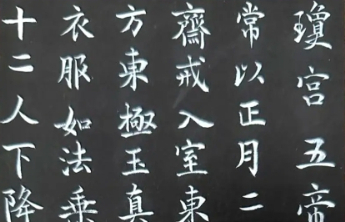 瓊宮五帝
常以正月二
齋戒入室東
方東極玉真
衣服如法乘
十二人下降